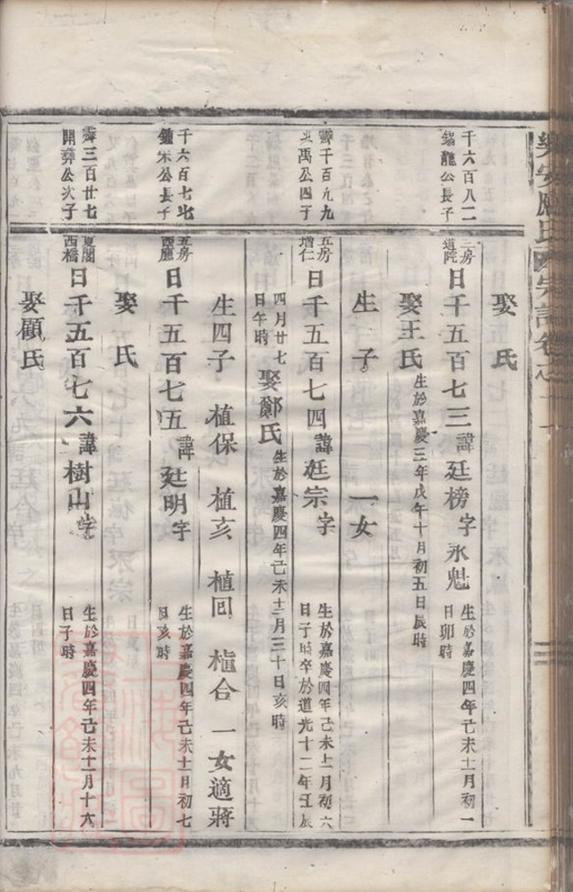 樂安 氏宗譜卷之
娶 氏
千六百八二
錫龍公長子
三房
道院
日千五百七三 諱廷榜 字永魁
生於嘉慶四年己未十二月初一
日卯時
娶王氏 生於嘉慶三年戊午十月初五日辰時
生 子 一女
霽千百九九
公四子
五房
增仁
日千五百七四 諱廷宗 字
生於嘉慶四年己未十二月初六
日子時卒於道光十二年壬辰
四月廿七
日午時
娶鄭氏 生於嘉慶四年己未十二月三十日亥時
生四子 植保 植亥 植回 植合 一女適蔣
千六百七
鍾 公長子
五房
西廳
日千五百七五 諱廷明 字
生於嘉慶四年己未十二月初七
日亥時
娶 氏
霽三百廿七
開彝公次子
夏閣
西橋
日千五百七六 諱樹山 字
生於嘉慶四年己未十二月十六
日子時
娶顧氏